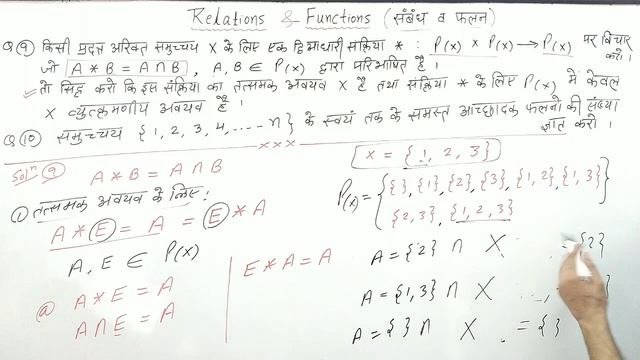 Relations & Functions (संबंध व फलन)
Q ⑨ किसी प्रदत्त अरिक्त समुच्चय X के लिए एक द्विआधारी संक्रिया * : P(x) × P(x) → P(x) पर विचार करो।
जो A * B = A ∩ B , A, B ∈ P(x) द्वारा परिभाषित है।
तो सिद्ध करो कि इस संक्रिया का तत्समक अवयव X है तथा संक्रिया * के लिए P(x) में केवल
X व्युत्क्रमणीय अवयव है।
Q ⑩ समुच्चय {1, 2, 3, 4, ---- n} के स्वयं तक के समस्त आच्छादक फलनों की संख्या
ज्ञात करो।
Solⁿ ⑨ A * B = A ∩ B
① तत्समक अवयव के लिए:
A * E = A = E * A
A, E ∈ P(x)
ⓐ A * E = A
A ∩ E = A
E * A = A
X = {1, 2, 3}
P(x) = { { }, {1}, {2}, {3}, {1, 2}, {1, 3}
{2, 3}, {1, 2, 3} }
A = {2} ∩ X = {2}
A = {1, 3} ∩ X
A = { } ∩ X = { }